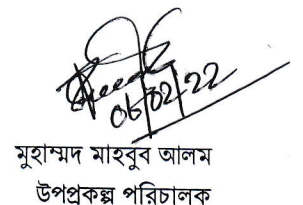 06/02/22
মুহাম্মদ মাহবুব আলম
উপপ্রকল্প পরিচালক